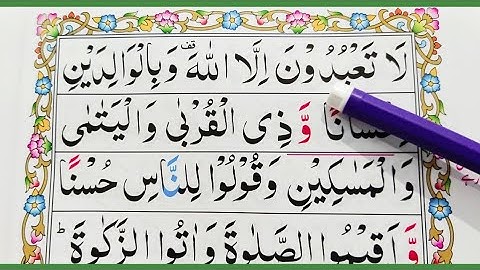 لَا تَعْبُدُوْنَ اِلَّا اللّٰهَ ۫ وَبِالْوَالِدَيْنِ
اِحْسَانًا وَّ ذِي الْقُرْبٰى وَالْيَتٰمٰى
وَالْمَسٰكِيْنِ وَقُوْلُوْا لِلنَّاسِ حُسْنًا
وَّ اَقِيْمُوا الصَّلٰوةَ وَاٰتُوا الزَّكٰوةَ ؕ